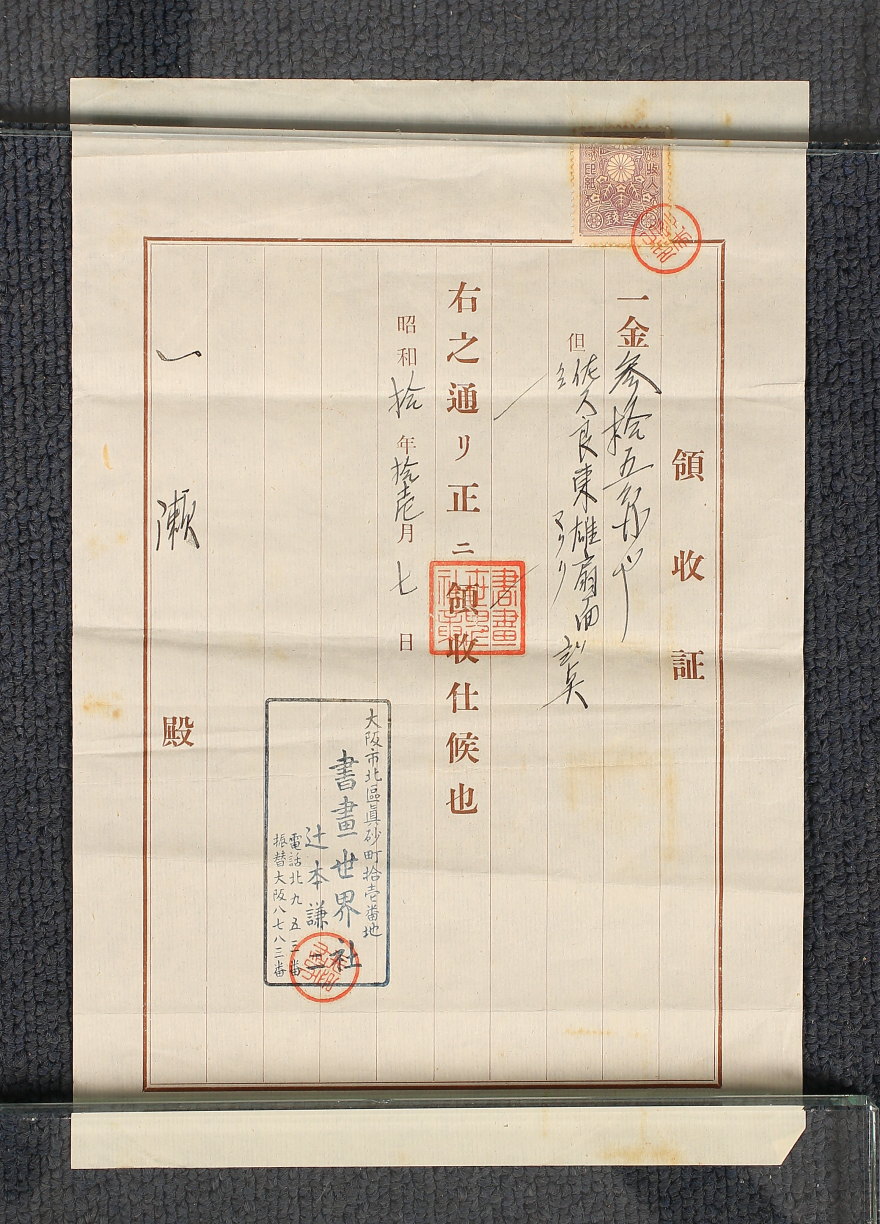 領収証
一金参拾五円也
但佐久良東雄扇面
マクリ
右之通リ正ニ領收仕候也
昭和拾年拾壱月七日
大阪市北區眞砂町拾壱番地
書畫世界社
辻本謙二
電話北九五三番
振替大阪八七八三番
一瀬殿
書畫世界社章